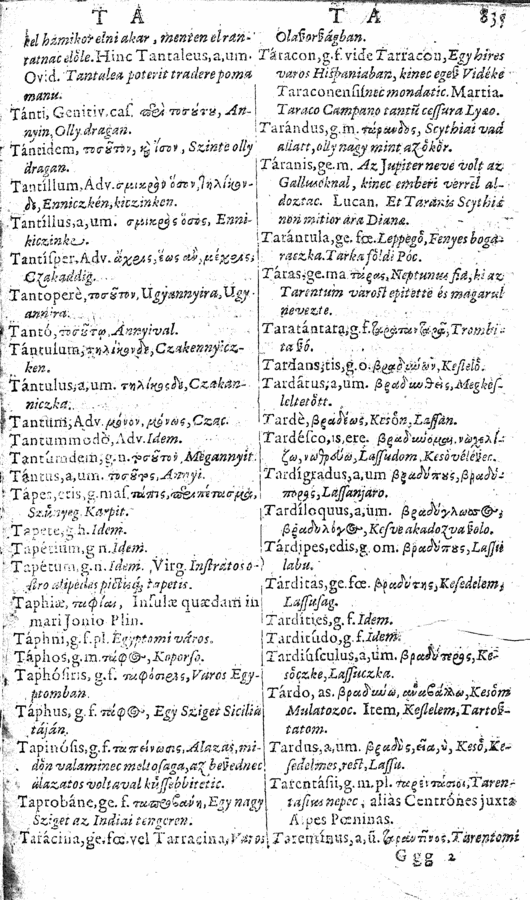 T A
T A
839
kel hámikor elni akar, menten el ran-
tatnac elöle. Hinc Tantaleus, a, um.
Ovid. Tantalea poterit tradere poma
manu.
Tánti, Genitiv. cas. τοσούτου, An-
nyin, Olly dragan.
Tántidem, τοσοῦτον, ἴσον, Szinte olly
dragan.
Tantíllum, Adv. σμικρὸν ὅσον,
Enniczkén, kiczinken.
Tantíllus, a, um. σμικρὸς ὅσος, Enni-
kiczinke.
Tantísper, Adv. ἄχρις, ἕως ἂν, μέχρις,
Czakaddig.
Tantoperè, τοσοῦτον, Ugyannyira, Ugy
annira.
Tantó, τοσούτῳ, Annyival.
Tántulum, τηλικόνδε, Czakennyicz-
ken.
Tántulus, a, um. τηλικόσδε, Czakan-
niczka.
Tantùm, Adv. μόνον, μόνως, Czac.
Tantummodò, Adv. Idem.
Tantúndem, g. n. τοσοῦτον, Mégannyit.
Tántus, a, um. τοσοῦτος, Annyi.
Tápes, etis, g. mas. τάπης,
Szünyeg. Karpit.
Tapete, g. n. Idem.
Tapétium, g n. Idem.
Tapétum, g. n. Idem. Virg. Instratos o-
stro alipedes pictisq́; tapetis.
Taphiæ, ταφίαι, Insulæ quædam in
mari Jonio Plin.
Táphni, g. f. pl. Egyptomi város.
Táphos, g. m. τάφος, Koporso.
Taphósiris, g. f. ταφόσιρις, Varos Egy-
ptomban.
Táphus, g. f. τάφος, Egy Sziget Sicilia
táján.
Tapinósis, g. f. ταπείνωσις, Alazás, mi-
dön valaminec meltosaga, az beßednec
álazatos voltaval küssebbitetic.
Taprobáne, ge. f. ταπροβάνη, Egy nagy
Sziget az Indiai tengeren.
Tarácina, ge. fœ. vel Tarracina, Varos
Olaßorßágban.
Táracon, g. f. vide Tarracon, Egy hires
varos Hißpaniaban, kinec egeß Vidéké
Taraconensisnec mondatic. Martia.
Taraco Campano tantũ cessura Lyæo.
Tarándus, g. m. τάρανδος, Scythiai vad
allatt, olly nagy mint az ökör.
Táranis, ge. m. Az Jupiter neve volt az
Gallusoknal, kinec emberi verrel al-
doztac. Lucan. Et Taranis Scythiæ
non mitior ara Dianæ.
Tarántula, ge. fœ. Leppegö, Fenyes boga-
raczka. Tarka földi Póc.
Táras, ge. ma τάρας, Neptunus fia, ki az
Tarentum varost epitette és magarul
nevezte.
Taratántara, g. f. Trombi-
ta ßó.
Tardans, tis, g. o. βραδύνων, Keslelö.
Tardátus, a, um. βραδυνθεὶς, Megkés-
leltetött.
Tardè, βραδέως, Kesön, Lassàn.
Tardésco, is, ere. βραδύνομαι,
Lassudom. Kesövélévec.
Tardígradus, a, um βραδύπους, βραδύ-
πορος, Lassanjaro.
Tardíloquus, a, um. βραδύγλωσσος,
βραδυλόγος, Kesve akadozva ßolo.
Tárdipes, edis, g. om. βραδύπους, Lassu
labu.
Tárditas, ge. fœ. βραδύτης, Kesedelem,
Lassusag.
Tardities, g. f. Idem.
Tarditúdo, g. f. Idem.
Tardiúsculus, a, um. βραδύτερος, Ke-
söczke, Lassuczka.
Tárdo, as. βραδύνω, ἀναβάλλω, Kesöm
Mulatozoc. Item, Keslelem, Tartoß-
tatom.
Tardus, a, um. βραδὺς, εῖα, ὺ, Kesö, Ke-
sedelmes, rest, Lassu.
Tarentásii, g. m. pl. Taren-
tasius nepec, alias Centrónes juxta
Alpes Pœninas.
Tarentinus, a, ũ. Tarentomi
G gg 2